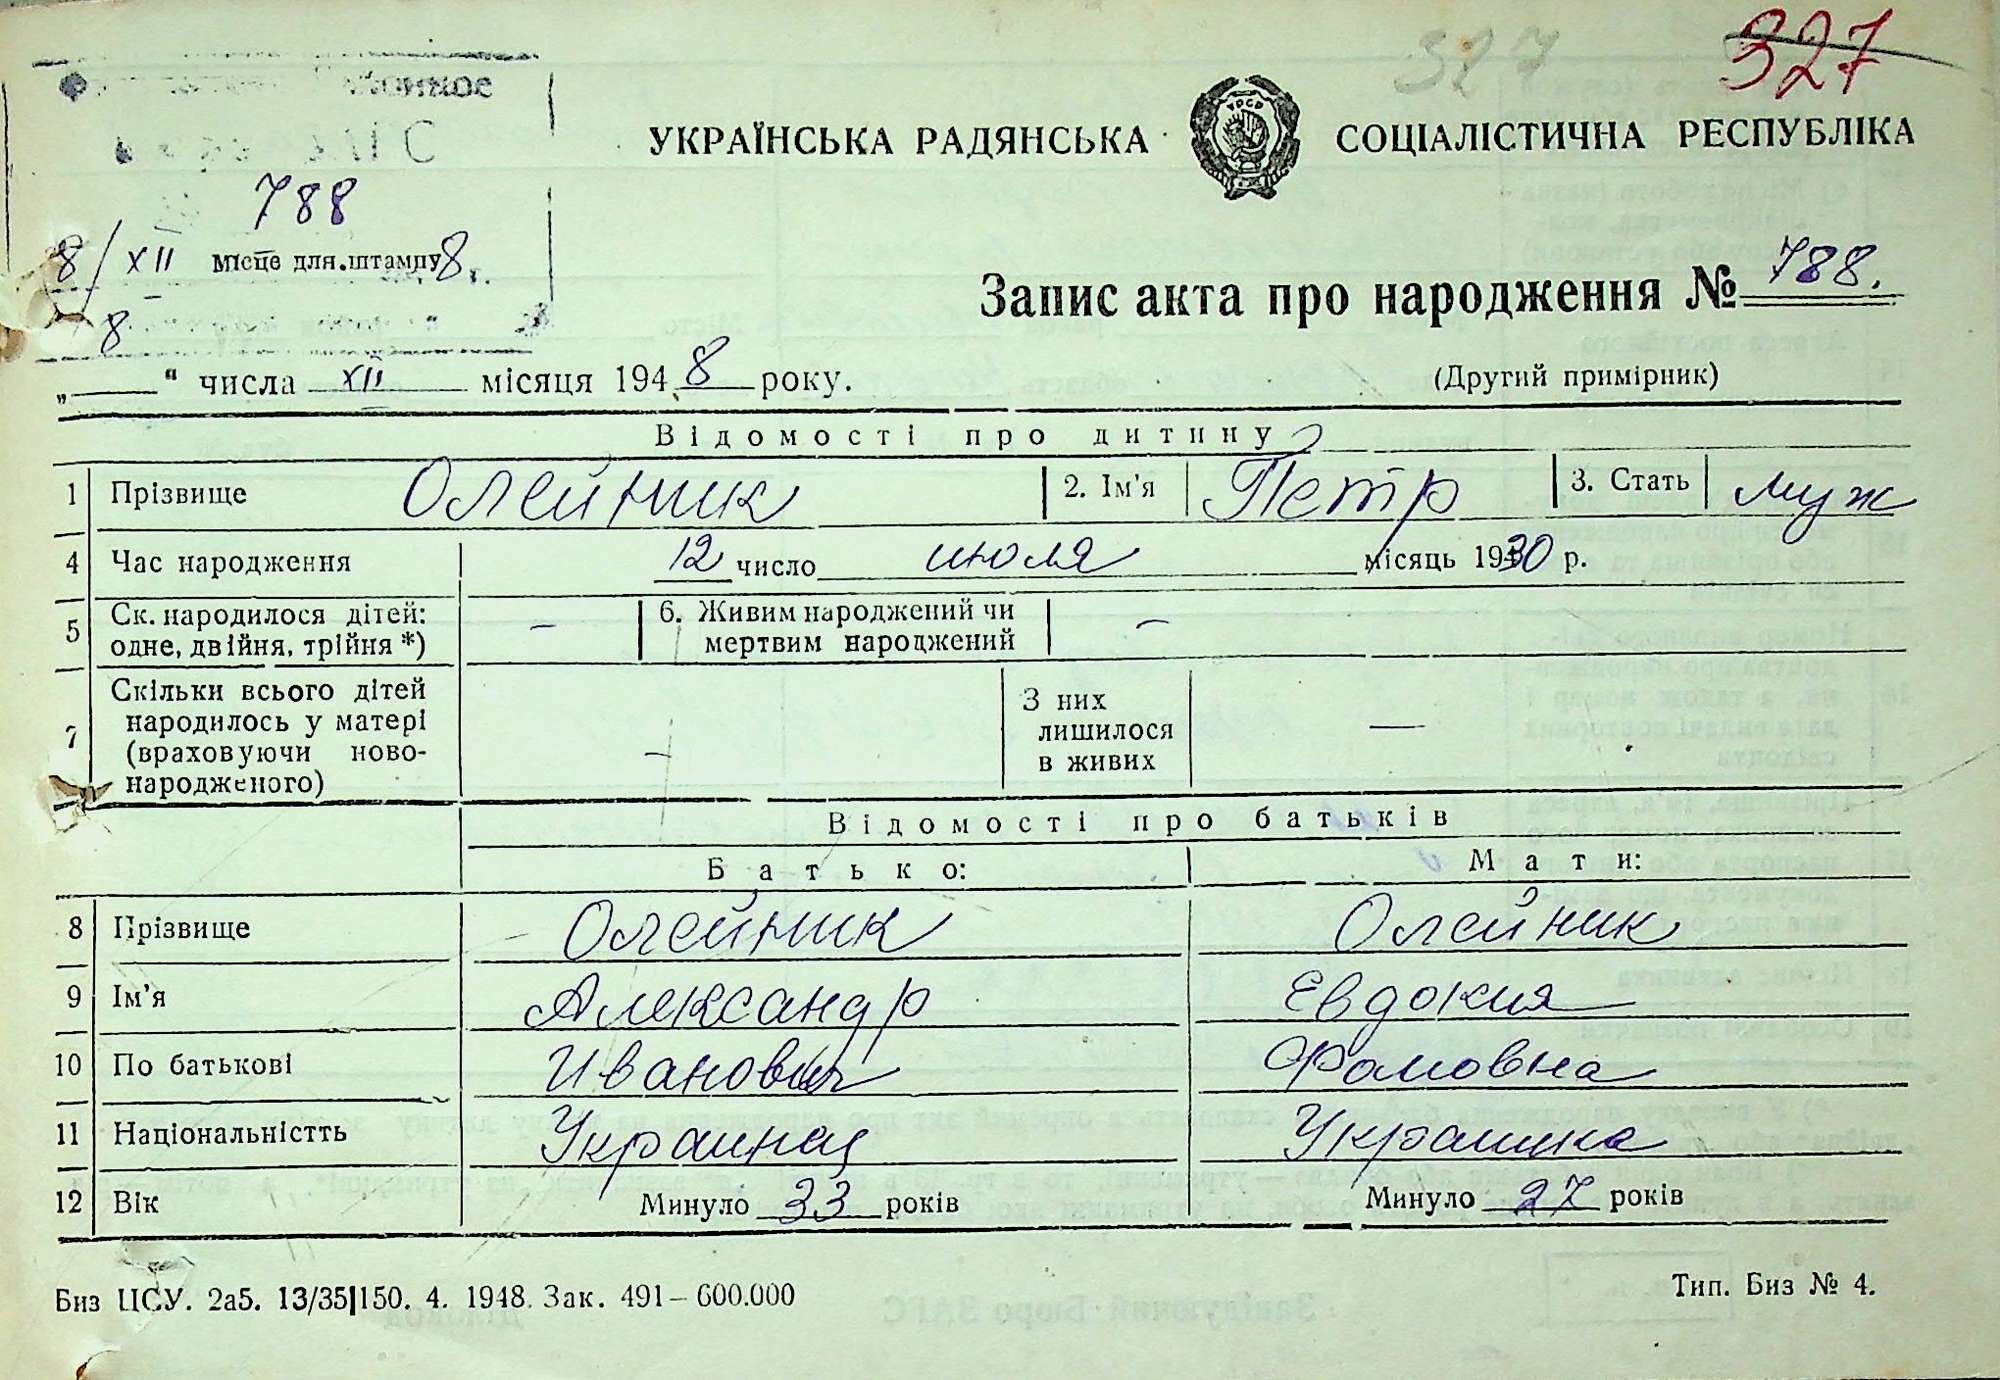 327 327
УКРАЇНСЬКА РАДЯНСЬКА СОЦІАЛІСТИЧНА РЕСПУБЛІКА
УРСР
ЗАГС
788
8/XII місце для штампу 8 г.
8
Запис акта про народження № 788.
„ “ числа XII місяця 1948 року.
(Другий примірник)
Відомості про дитину
1 Прізвище Олейник 2. Ім'я Пётр 3. Стать муж
4 Час народження 12 число июля місяць 1930 р.
5 Ск. народилося дітей: одне, двійня, трійня *) – 6. Живим народжений чи мертвим народжений –
7 Скільки всього дітей народилось у матері (враховуючи новонародженого) – З них лишилося в живих —
Відомості про батьків
Батько: Мати:
8 Прізвище Олейник Олейник
9 Ім'я Александр Евдокия
10 По батькові Иванович Фомовна
11 Національністть Украинец Украинка
12 Вік Минуло 33 років Минуло 27 років
Биз ЦСУ. 2а5. 13/35|150. 4. 1948. Зак. 491–600.000 Тип. Биз № 4.